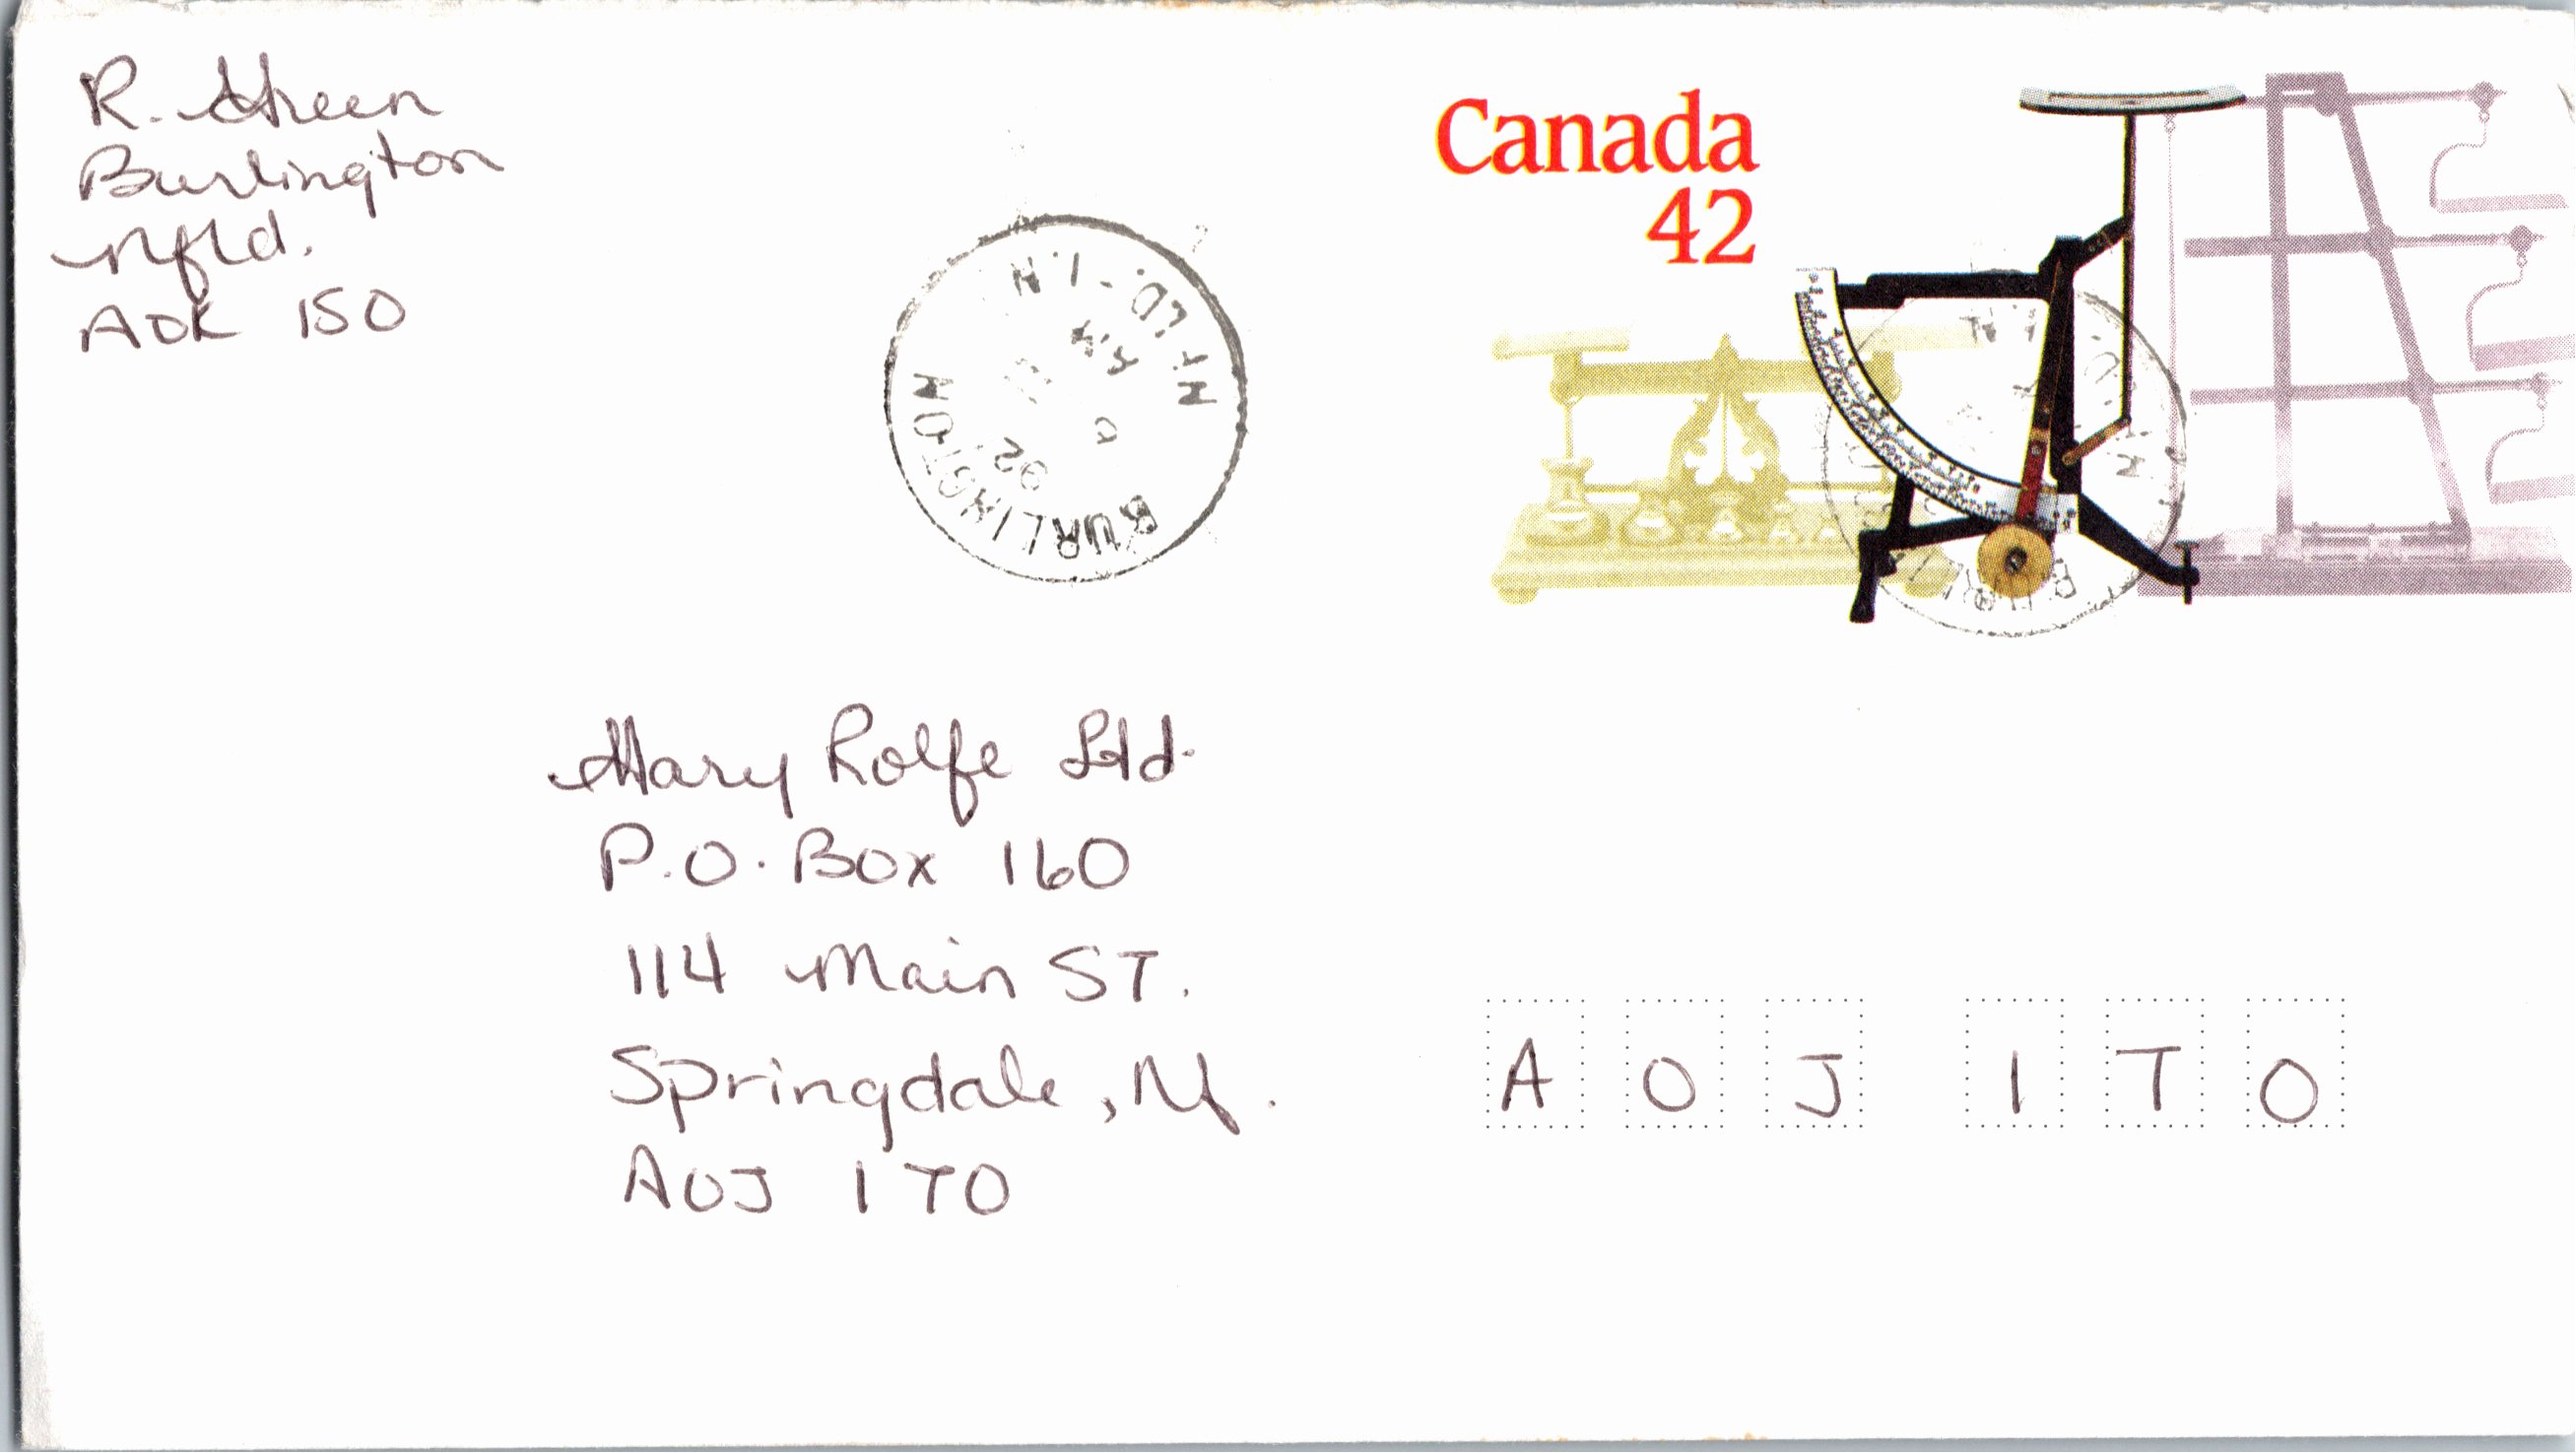 R. Green
Burlington
Nfld.
A0K 1S0
Canada
42
BURLINGTON
NFLD. - T.N
92
Mary Rolfe Ltd.
P.O. Box 160
114 Main ST.
Springdale, Nf.
A0J 1T0
A0J 1T0